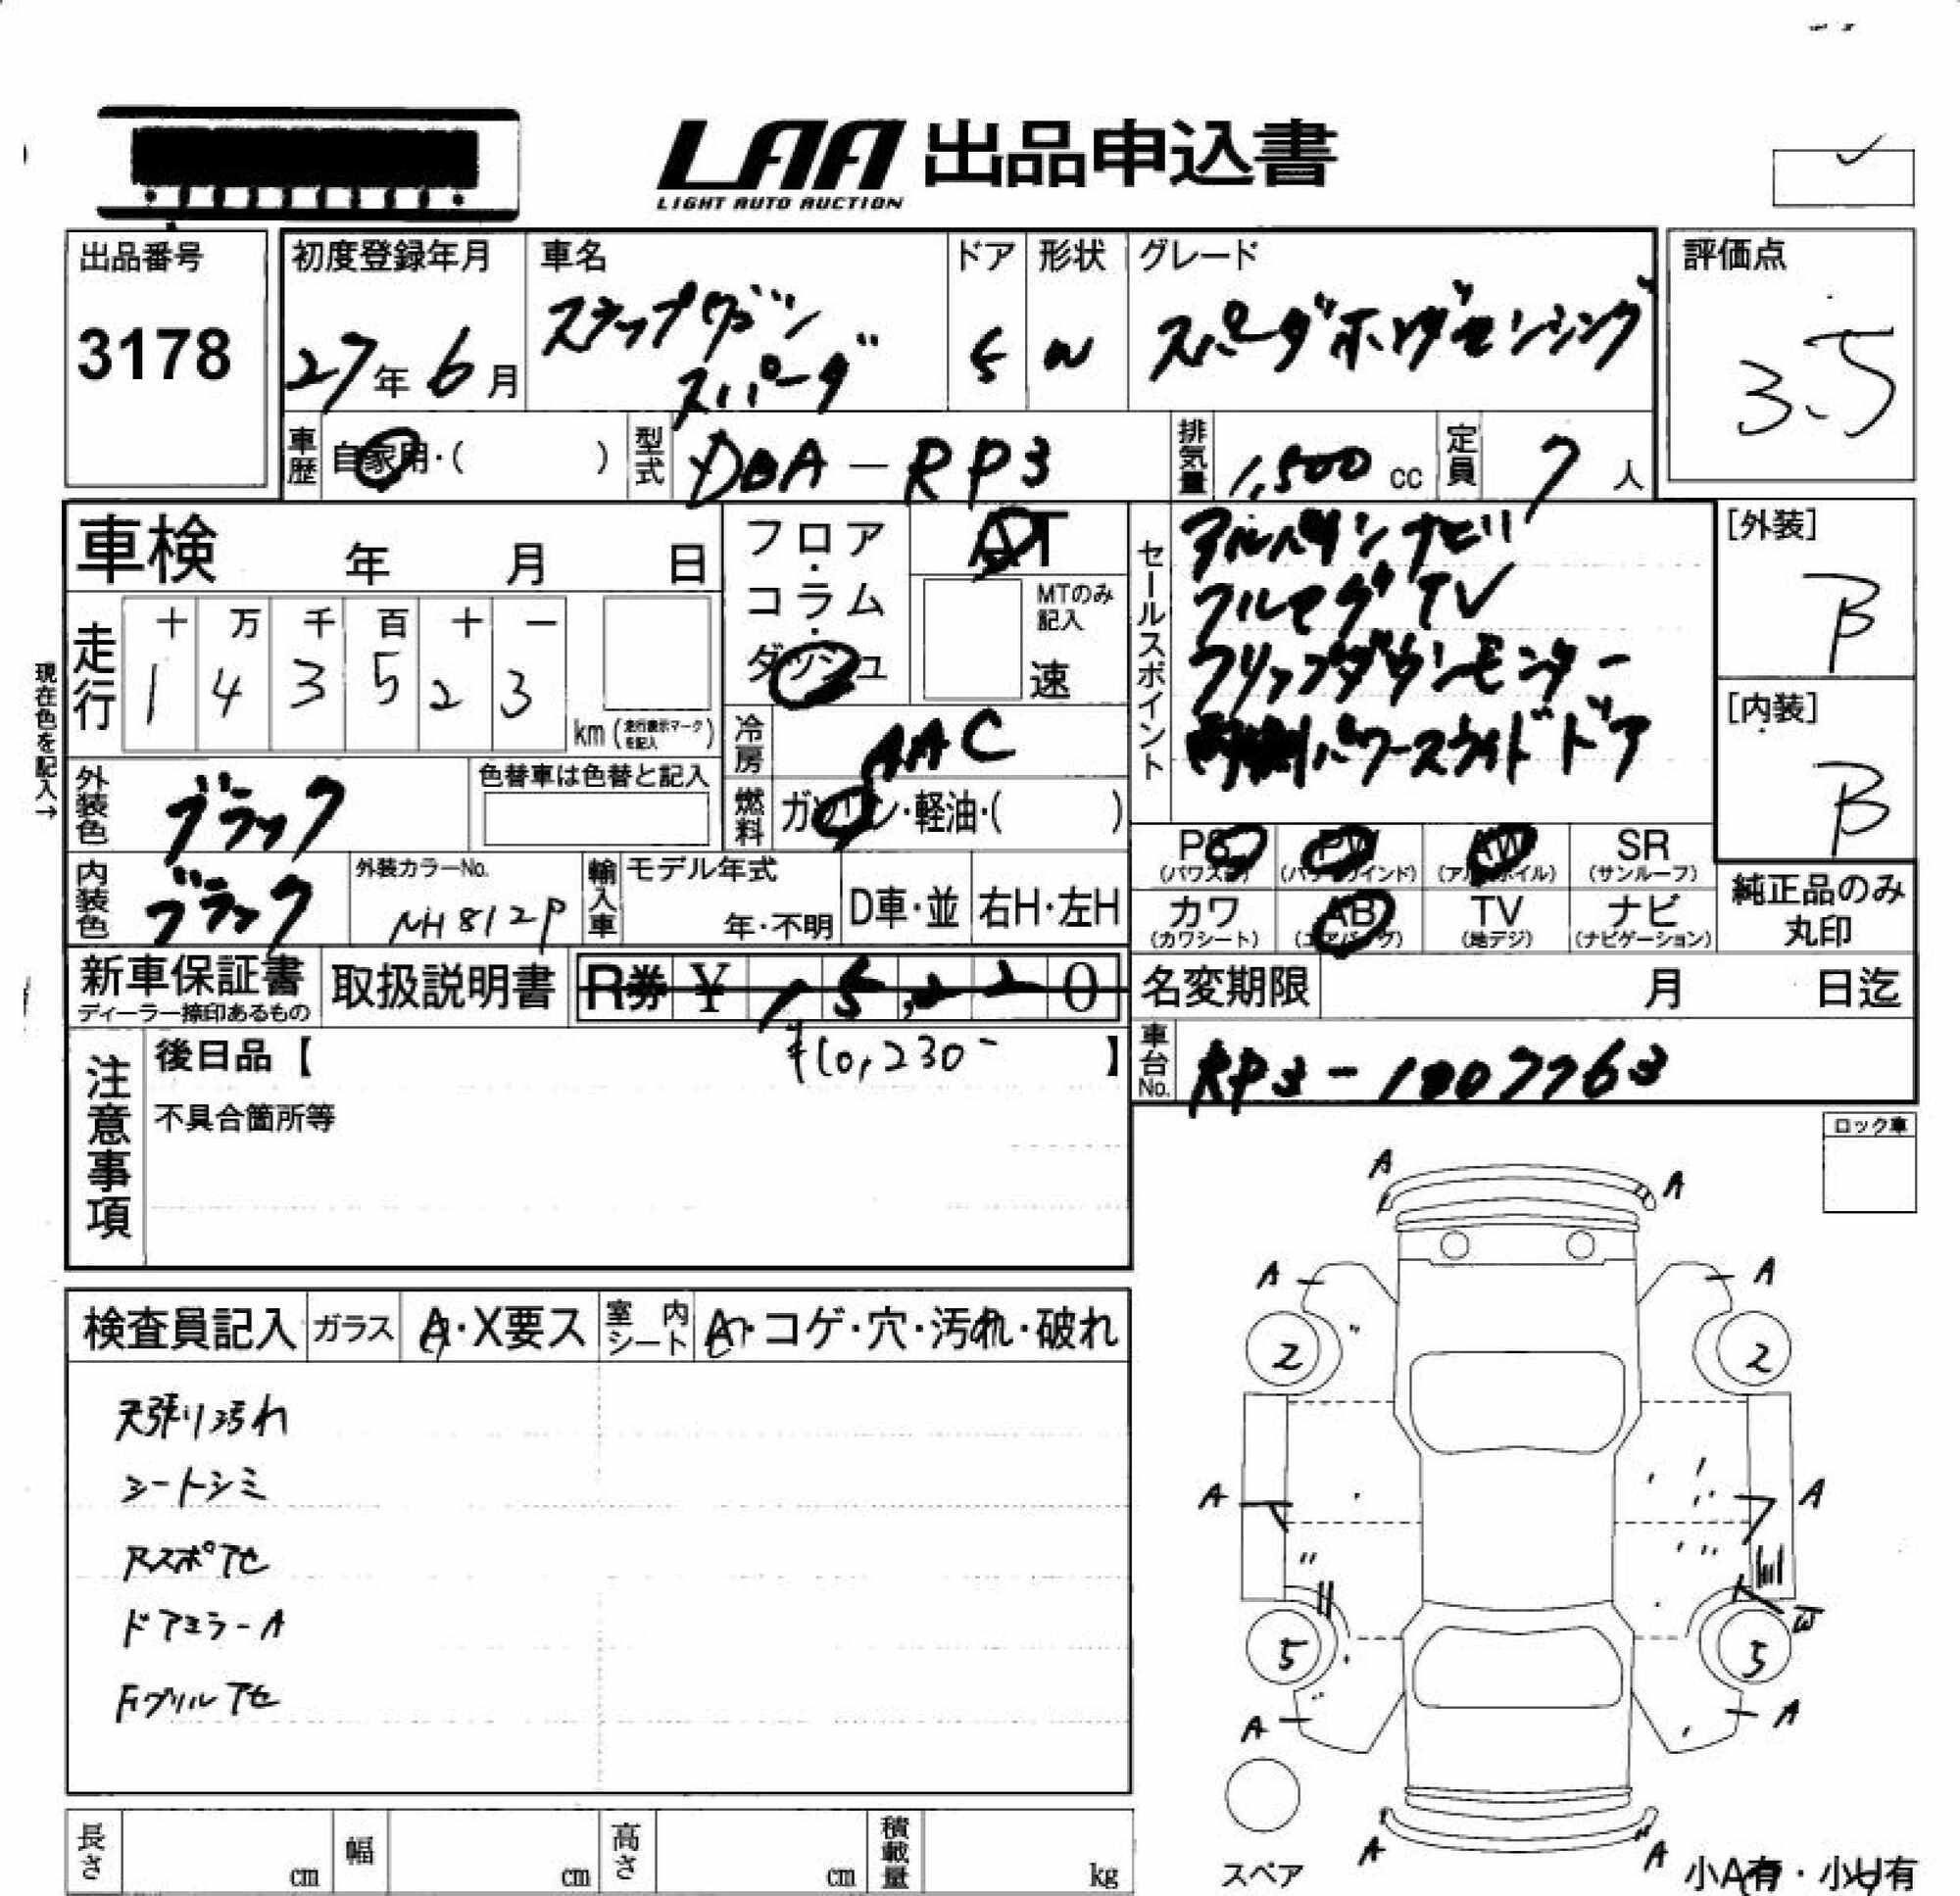 LAA 出品申込書
LIGHT AUTO AUCTION
出品番号
3178
初度登録年月
27年6月
車名
ステップワゴン
スパーダ
ドア
5
形状
W
グレード
スパーダホンダセンシング
評価点
3.5
車歴 自家用・( )
型式 DBA-RP3
排気量 1,500 cc
定員 7 人
車検 年 月 日
走行
十 万 千 百 十 一
1 4 3 5 2 3
km (走行表示マークを記入)
現在色を記入→
フロア・コラム・ダッシュ
AT
MTのみ記入
速
冷房 AAC
燃料 ガソリン・軽油・( )
セールスポイント
アルパインナビ
フルセグTV
フリップダウンモニター
両側パワースライドドア
[外装]
B
[内装]
B
外装色 ブラック
色替車は色替と記入
内装色 ブラック
外装カラーNo.
NH812P
輸入車 モデル年式
年・不明
D車・並
右H・左H
PS (パワステ)
PW (パワーウインド)
AW (アルミホイル)
SR (サンルーフ)
カワ (カワシート)
AB (エアバッグ)
TV (地デジ)
ナビ (ナビゲーション)
純正品のみ丸印
新車保証書
ディーラー捺印あるもの
取扱説明書
R券 ¥ 15,220
¥10,230-
名変期限 月 日迄
車台No. RP3-1007763
注意事項
後日品【 】
不具合箇所等
ロック車
検査員記入
ガラス A・X要ス
室内シート A・コゲ・穴・汚れ・破れ
天張り汚れ
シートシミ
Rスポアセ
ドアミラーA
Fグリルアセ
A A
A A
2 2
A A
5 5
W
A A
A A
スペア
小A有・小U有
長さ cm
幅 cm
高さ cm
積載量 kg